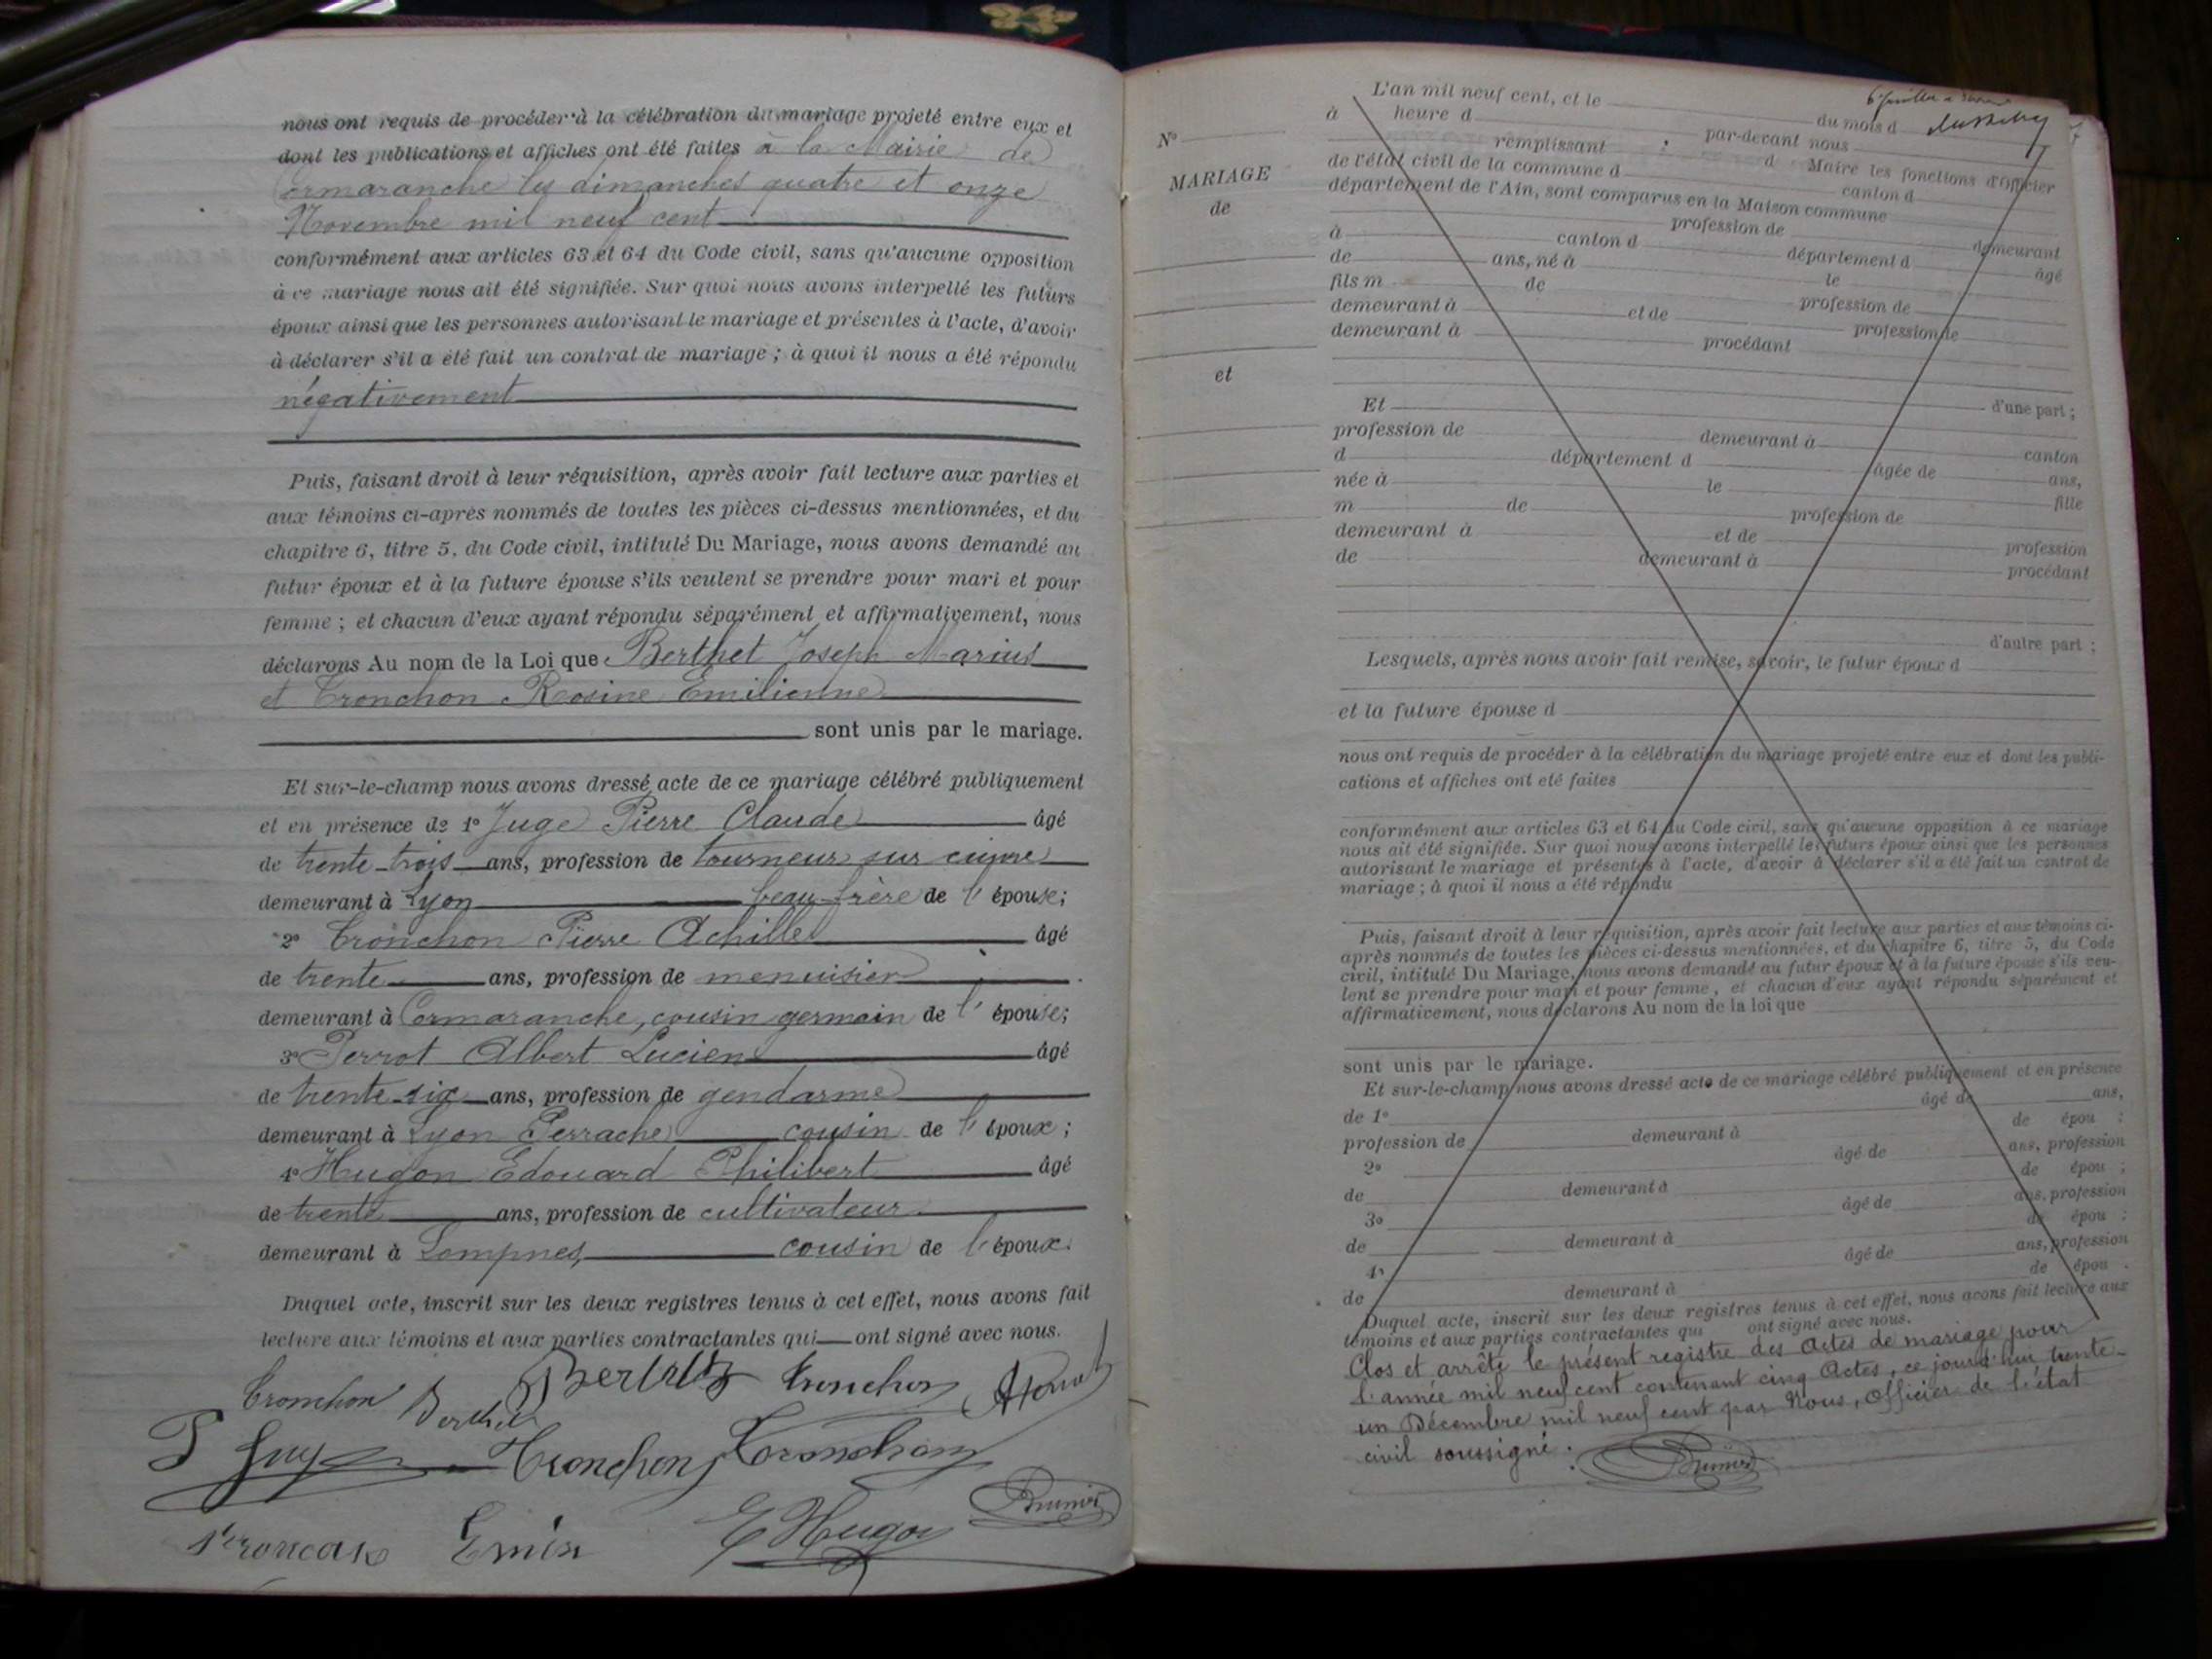 nous ont requis de procéder à la célébration du mariage projeté entre eux et
dont les publications et affiches ont été faites à la Mairie de
Cormaranche les dimanches quatre et onze
Novembre mil neuf cent
conformément aux articles 63 et 64 du Code civil, sans qu'aucune opposition
à ce mariage nous ait été signifiée. Sur quoi nous avons interpellé les futurs
époux ainsi que les personnes autorisant le mariage et présentes à l'acte, d'avoir
à déclarer s'il a été fait un contrat de mariage ; à quoi il nous a été répondu
négativement
Puis, faisant droit à leur réquisition, après avoir fait lecture aux parties et
aux témoins ci-après nommés de toutes les pièces ci-dessus mentionnées, et du
chapitre 6, titre 5, du Code civil, intitulé Du Mariage, nous avons demandé au
futur époux et à la future épouse s'ils veulent se prendre pour mari et pour
femme ; et chacun d'eux ayant répondu séparément et affirmativement, nous
déclarons Au nom de la Loi que Berthet Joseph Marius
et Tronchon Rosine Emilienne
sont unis par le mariage.
Et sur-le-champ nous avons dressé acte de ce mariage célébré publiquement
et en présence de 1° Juge Pierre Claude âgé
de trente-trois ans, profession de tourneur sur cuivre
demeurant à Lyon beau-frère de l'épouse;
2° Tronchon Pierre Achille âgé
de trente ans, profession de menuisier
demeurant à Cormaranche, cousin germain de l'épouse;
3° Perrot Albert Lucien âgé
de trente-six ans, profession de gendarme
demeurant à Lyon Perrache cousin de l'époux ;
4° Hugon Edouard Philibert âgé
de trente ans, profession de cultivateur
demeurant à Lompnes, cousin de l'époux.
Duquel acte, inscrit sur les deux registres tenus à cet effet, nous avons fait
lecture aux témoins et aux parties contractantes qui ont signé avec nous.
Tronchon Berthet Tronchon
P Juge Tronchon Tronchon
Emin E Hugon Brunier
N°
MARIAGE
de
et
L'an mil neuf cent, et le du mois d
à heure d par-devant nous
remplissant d Maire les fonctions d'Officier
de l'état civil de la commune d canton d
département de l'Ain, sont comparus en la Maison commune
profession de demeurant
à canton d département d âgé
de ans, né à le
fils m de profession de
demeurant à et de profession de
demeurant à procédant
d'une part ;
Et
profession de demeurant à canton
d département d âgée de ans,
née à le fille
m de profession de
demeurant à et de profession
de demeurant à procédant
d'autre part ;
Lesquels, après nous avoir fait remise, savoir, le futur époux d
et la future épouse d
nous ont requis de procéder à la célébration du mariage projeté entre eux et dont les publi-
cations et affiches ont été faites
conformément aux articles 63 et 64 du Code civil, sans qu'aucune opposition à ce mariage
nous ait été signifiée. Sur quoi nous avons interpellé les futurs époux ainsi que les personnes
autorisant le mariage et présentes à l'acte, d'avoir à déclarer s'il a été fait un contrat de
mariage ; à quoi il nous a été répondu
Puis, faisant droit à leur réquisition, après avoir fait lecture aux parties et aux témoins ci-
après nommés de toutes les pièces ci-dessus mentionnées, et du chapitre 6, titre 5, du Code
civil, intitulé Du Mariage, nous avons demandé au futur époux et à la future épouse s'ils veu-
lent se prendre pour mari et pour femme, et chacun d'eux ayant répondu séparément et
affirmativement, nous déclarons Au nom de la loi que
sont unis par le mariage.
Et sur-le-champ nous avons dressé acte de ce mariage célébré publiquement et en présence
de 1° âgé de ans,
profession de demeurant à de épou ;
2° âgé de ans, profession
de demeurant à de épou ;
3° âgé de ans, profession
de demeurant à de épou ;
4° âgé de ans, profession
de demeurant à de épou .
Duquel acte, inscrit sur les deux registres tenus à cet effet, nous avons fait lecture aux
témoins et aux parties contractantes qui ont signé avec nous.
Clos et arrêté le présent registre des Actes de mariage pour
l'année mil neuf cent contenant cinq Actes, ce jourd'hui trente-
un Décembre mil neuf cent par Nous, Officier de l'état
civil soussigné.
Brunier